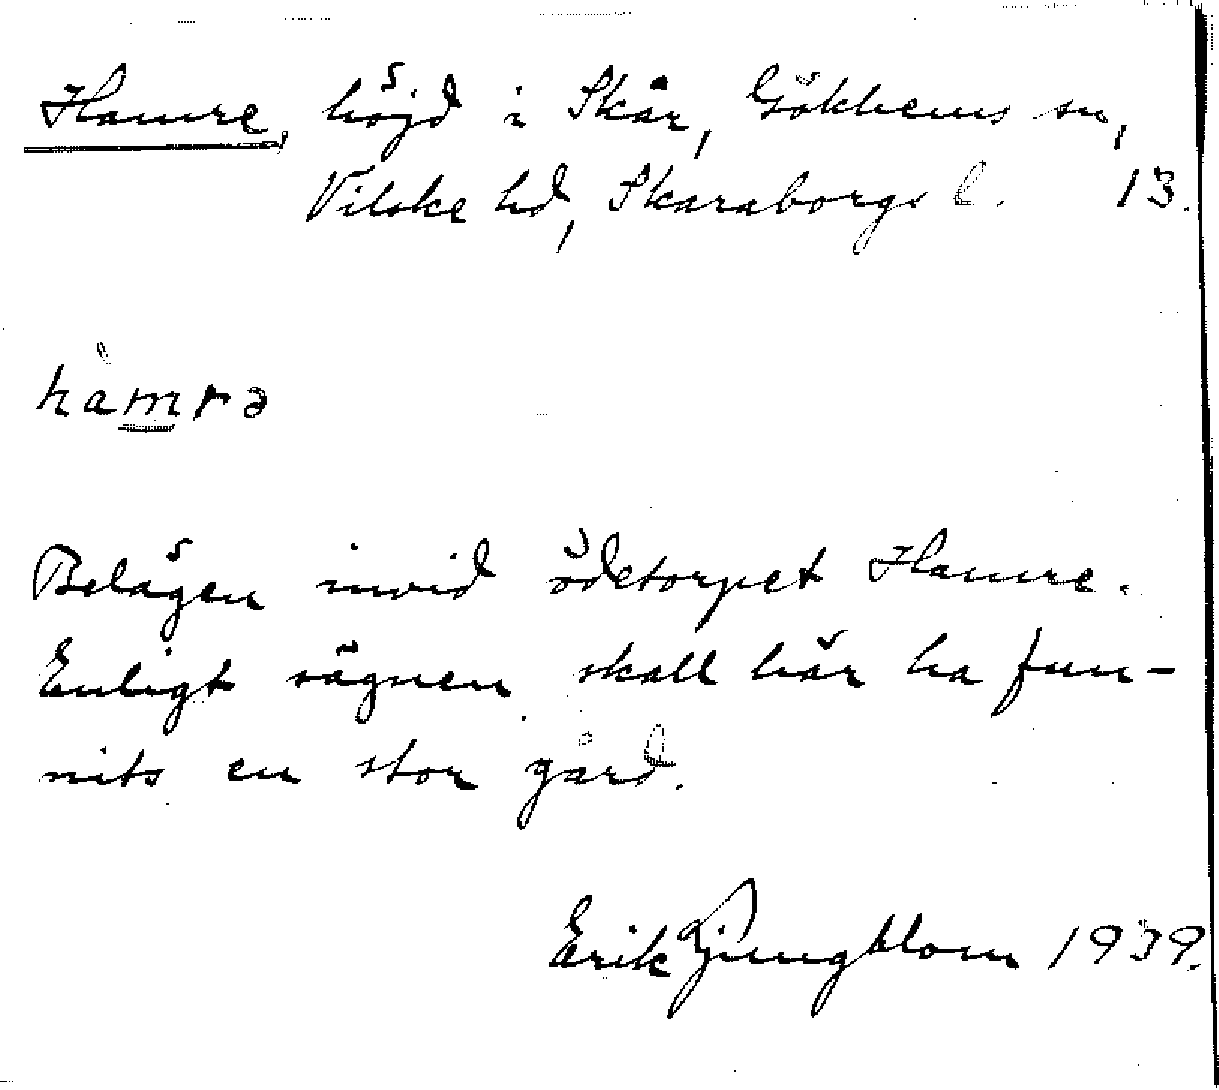 Hamre, höjd i Skår, Gökhems sn,
Vilske hd, Skaraborgs l. 13.
hàmrə
Belägen invid ödetorpet Hamre.
Enligt sägnen skall här ha fun-
nits en stor gård.
Erik Ljungblom 1939.